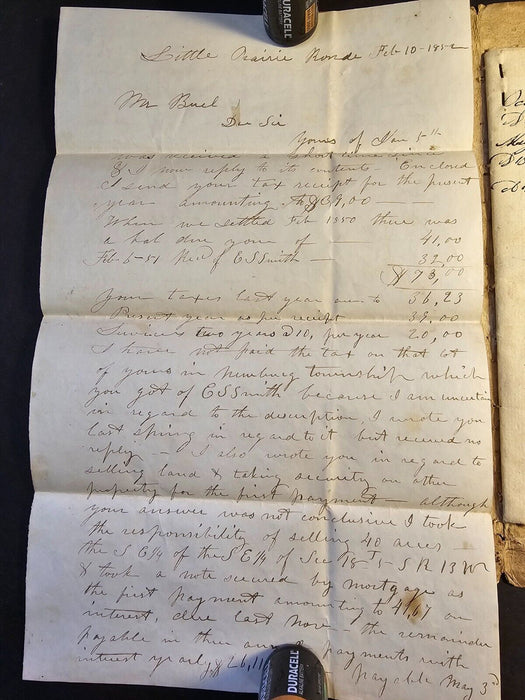 Little Prairie Ronde Feb 10-1852
Mr Buel
Der Sir
Yours of Nov 5th
was received a short time since
& I now reply to its contents - Enclosed
I send your tax receipt for the present
year amounting to $39,00 —
When we settled Feb 1850 there was
a bal due you of — 41,00
Feb 6-51 Recd of E S Smith — 32,00
$73,00
Your taxes last year am to 36,23
Present year as per receipt 39.00
Services two years @ 10, per year 20,00
I have not paid the tax on that lot
of yours in Newburg township which
you got of E S Smith because I am uncertain
in regard to the description, I wrote you
last spring in regard to it but received no
reply — I also wrote you in regard to
selling land & taking security on other
property for the first payment — although
your answer was not conclusive I took
the responsibility of selling 40 acres —
the S E 1/4 of the S E 1/4 of Sec 18 T 5 S R 13 W
& took a note secured by mortgage as
the first payment amounting to 41,67 on
interest, due last Nov — the remainder
payable in three payments with
interest yearly payable May 3d
DURACELL
DURACELL